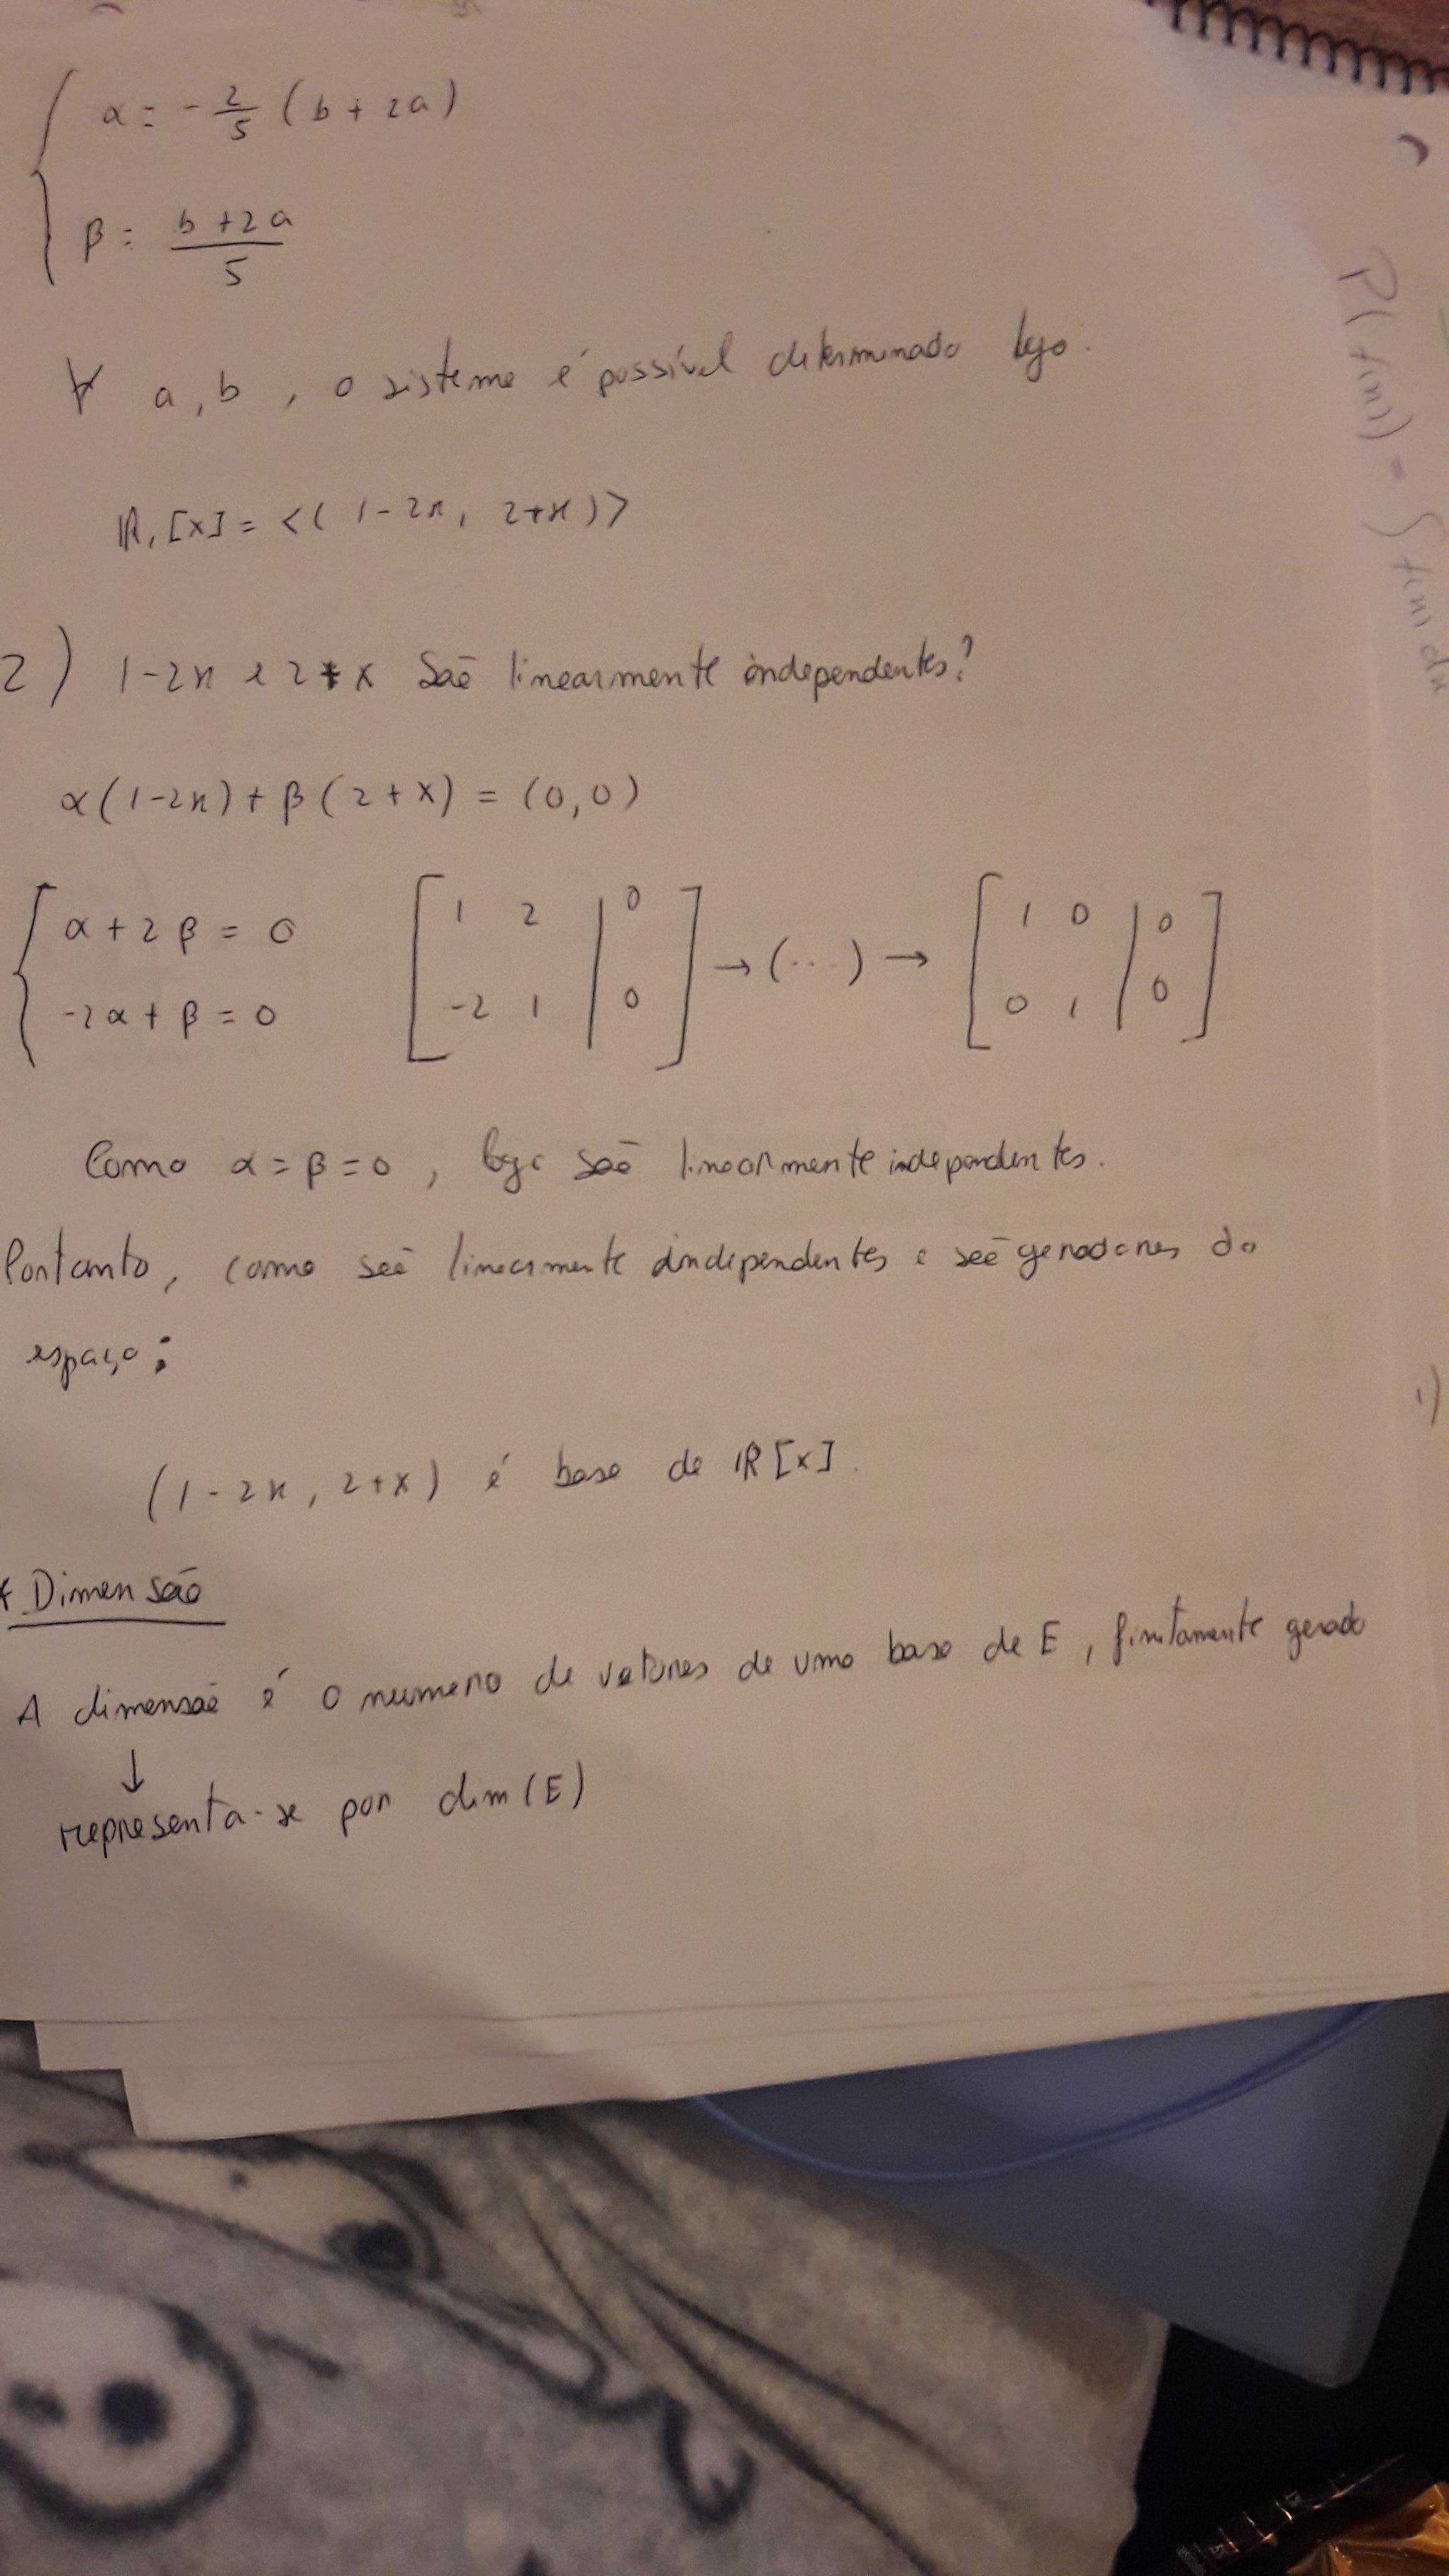 α = - 2/5 (b + 2a)
β = (b + 2a)/5
∀ a, b, o sistema é possível determinado logo:
ℝ₁[x] = <(1-2x, 2+x)>
2) 1-2x e 2+x São linearmente independentes?
α(1-2x) + β(2+x) = (0,0)
{ α + 2β = 0
-2α + β = 0
[ 1 2 | 0
-2 1 | 0 ] → (...) → [ 1 0 | 0
0 1 | 0 ]
Como α = β = 0, logo são linearmente independentes.
Portanto, como são linearmente independentes e são geradores do
espaço:
(1-2x, 2+x) é base de ℝ[x].
* Dimensão
A dimensão é o numero de vetores de uma base de E, finitamente gerado
↓
representa-se por dim(E)
P(f(x)) = ∫ f(x) dx
1)